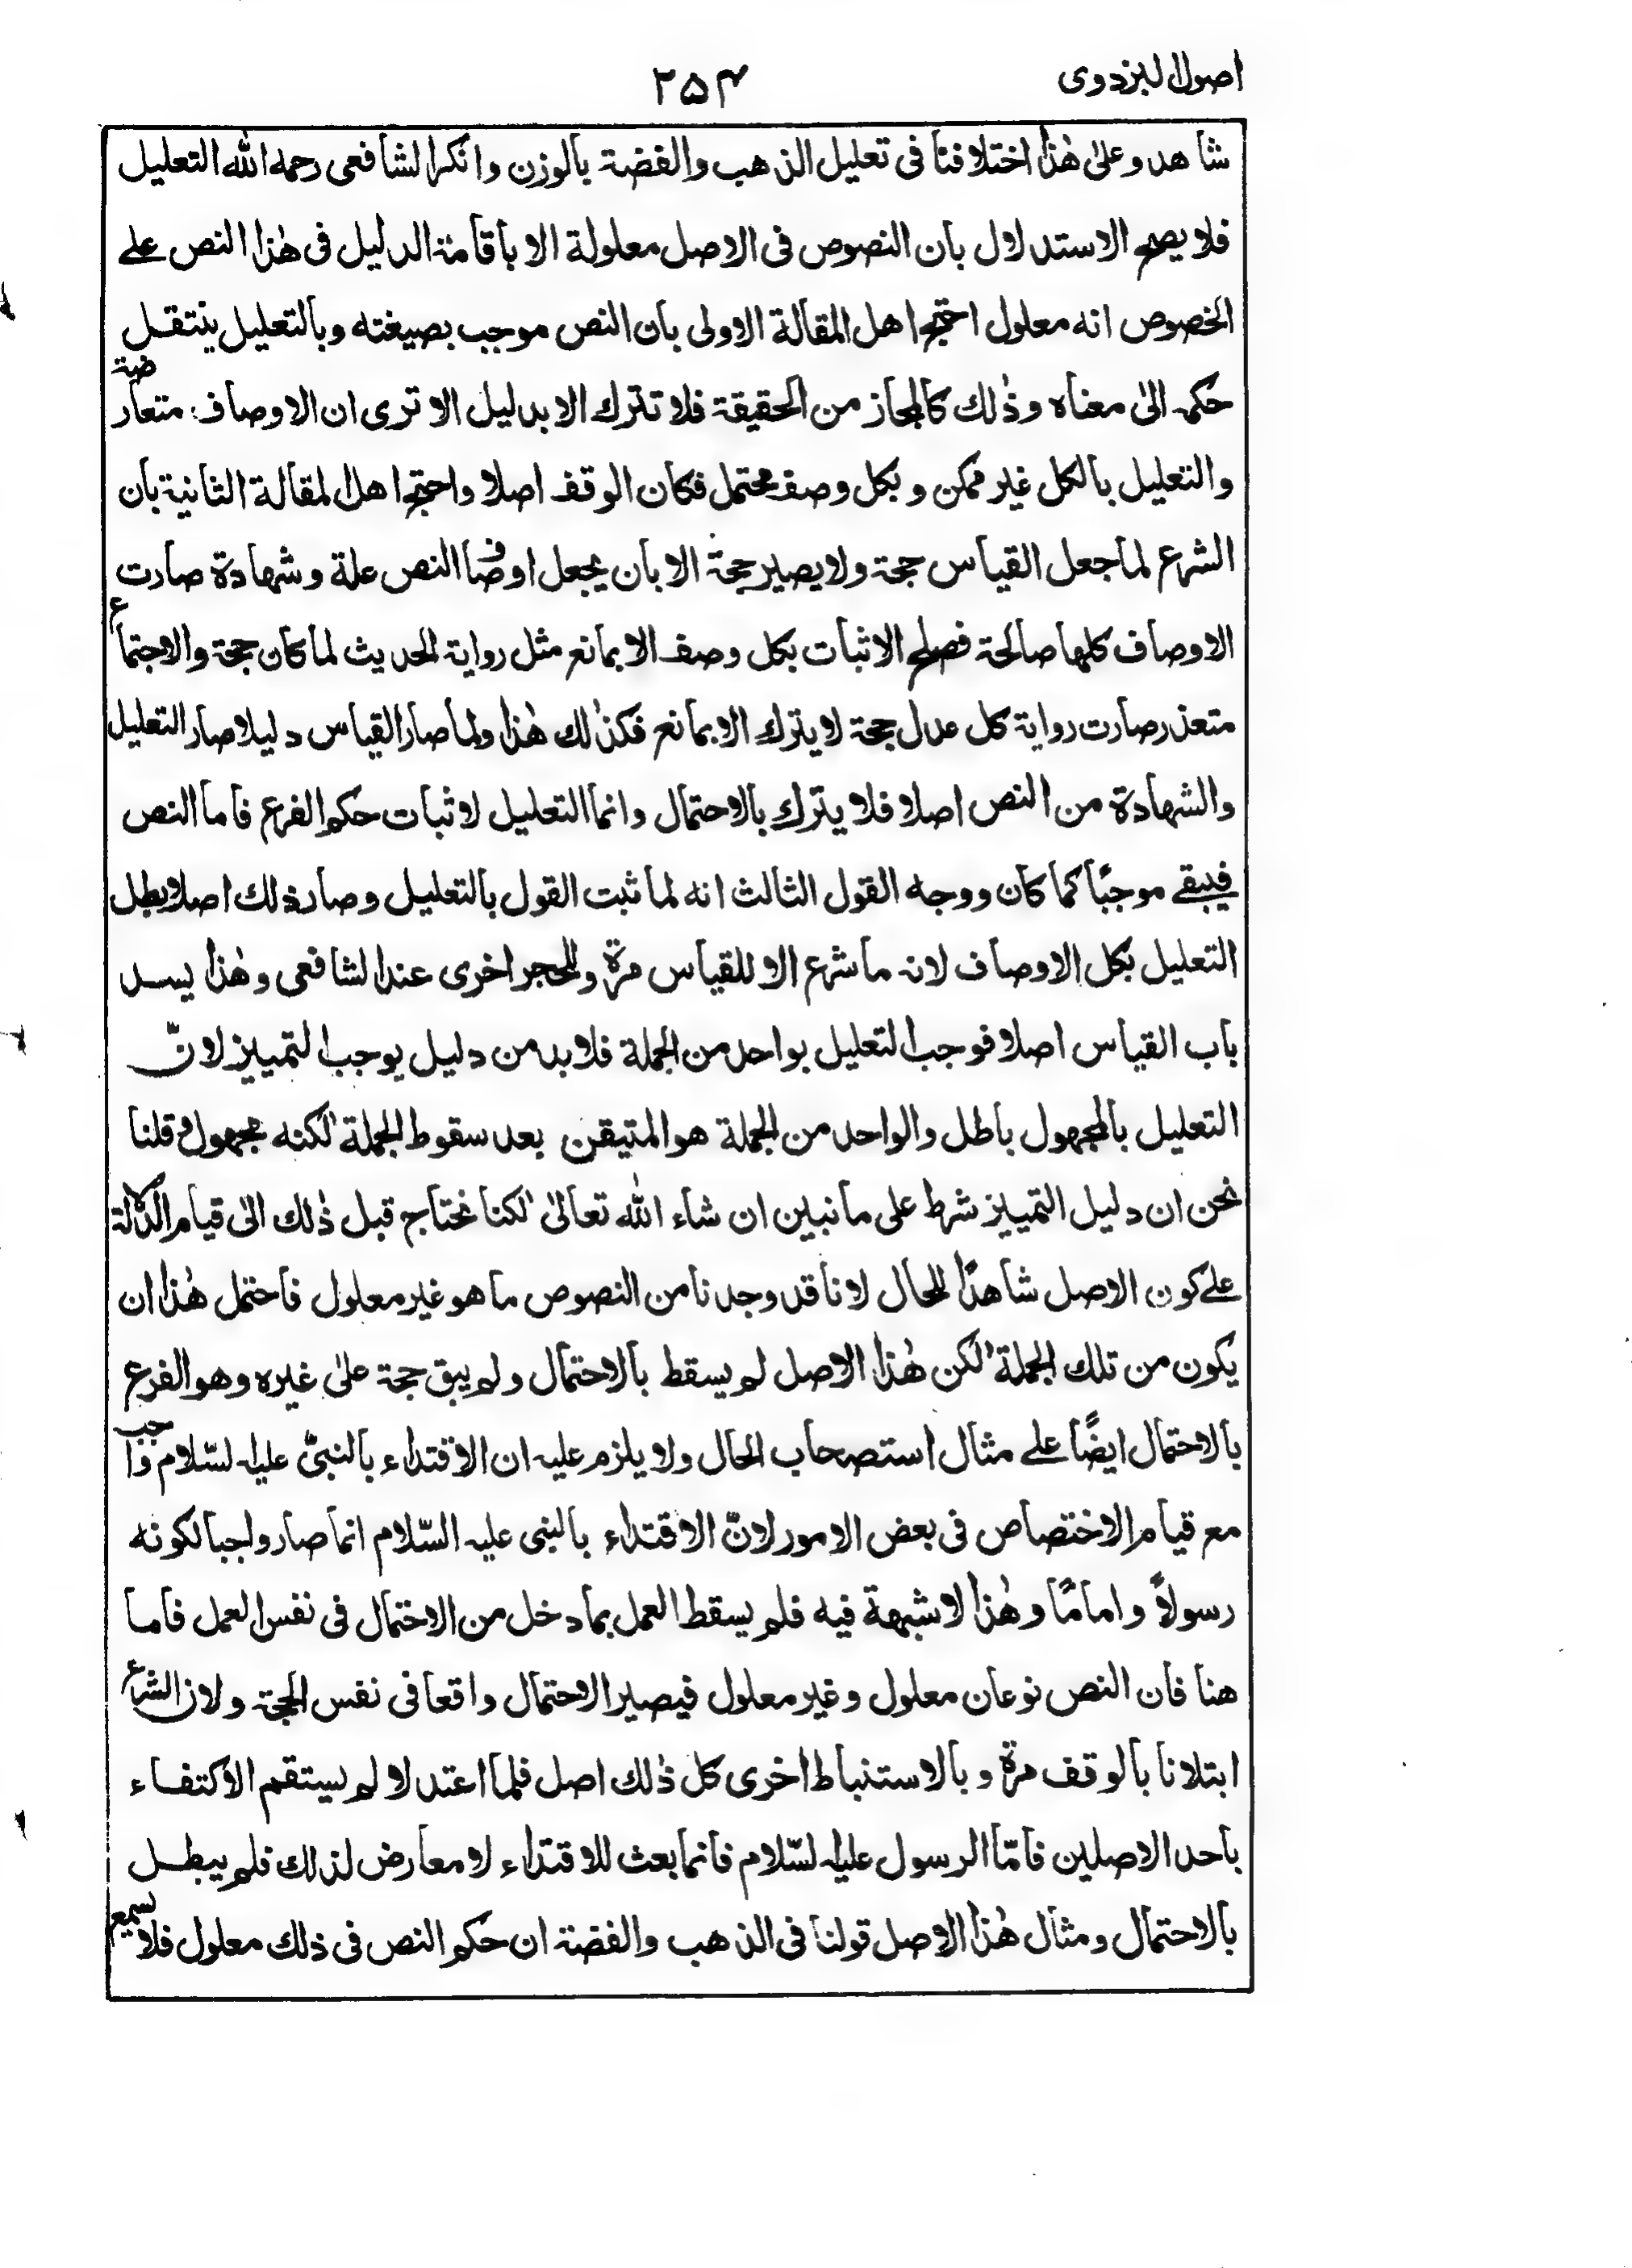 اصول البزدوى
٢٥٤
شاهد وعلى هٰذا اختلافنا فى تعليل الذهب والفضة بالوزن وانكر الشافعى رحمه الله التعليل
فلا يصح الاستدلال بان النصوص فى الاصل معلولة الا باقامة الدليل فى هٰذا النص على
الخصوص انه معلول احتج اهل المقالة الاولى بان النص موجب بصيغته وبالتعليل ينتقل
حكمه الىٰ معناه وذٰلك كالمجاز من الحقيقة فلا تترك الا بدليل الا ترى ان الاوصاف متعارضة
والتعليل بالكل غير ممكن وبكل وصف محتمل فكان الوقف اصلا واحتج اهل المقالة الثانية بان
الشرع لما جعل القياس حجة ولا يصير حجة الا بان يجعل اوصاف النص علة وشهادة صارت
الاوصاف كلها صالحة فصلح الاثبات بكل وصف الا بمانع مثل رواية الحديث لما كان حجة والاجتماع
متعذر صارت رواية كل عدل حجة لا يترك الا بمانع فكذٰلك هٰذا ولما صار القياس دليلا صار التعليل
والشهادة من النص اصلا فلا يترك بالاحتمال وانما التعليل لاثبات حكم الفرع فاما النص
فيبقى موجبًا كما كان ووجه القول الثالث انه لما ثبت القول بالتعليل وصار ذلك اصلا بطل
التعليل بكل الاوصاف لانه ما شرع الا للقياس مرة وللحجر اخرى عند الشافعى وهٰذا يسد
باب القياس اصلا فوجب التعليل بواحد من الجملة فلا بد من دليل يوجب التمييز لانّ
التعليل بالمجهول باطل والواحد من الجملة هو المتيقن بعد سقوط الجملة لٰكنه مجهول وقلنا
نحن ان دليل التمييز شرط على ما نبين ان شاء الله تعالىٰ لٰكنا نحتاج قبل ذٰلك الىٰ قيام الدلالة
على كون الاصل شاهدًا للحال لانا قد وجدنا من النصوص ما هو غير معلول فاحتمل هٰذا ان
يكون من تلك الجملة لٰكن هٰذا الاصل لم يسقط بالاحتمال ولم يبق حجة علىٰ غيره وهو الفرع
بالاحتمال ايضًا على مثال استصحاب الحال ولا يلزم عليه ان الاقتداء بالنبىّ عليه السّلام واجب
مع قيام الاختصاص فى بعض الامور لانّ الاقتداء بالنبى عليه السّلام انما صار واجبا لكونه
رسولاً وامامًا وهٰذا لا شبهة فيه فلم يسقط العمل بما دخل من الاحتمال فى نفس العمل فاما
هنا فان النص نوعان معلول وغير معلول فيصير الاحتمال واقعا فى نفس الحجة ولان الشرع
ابتلانا بالوقف مرة وبالاستنباط اخرى كل ذٰلك اصل فلما اعتدلا لم يستقم الاكتفاء
باحد الاصلين فامّا الرسول عليه السّلام فانما بعث للاقتداء لا معارض لذلك فلم يبطل
بالاحتمال ومثال هٰذا الاصل قولنا فى الذهب والفضة ان حكم النص فى ذلك معلول فلا يسمع